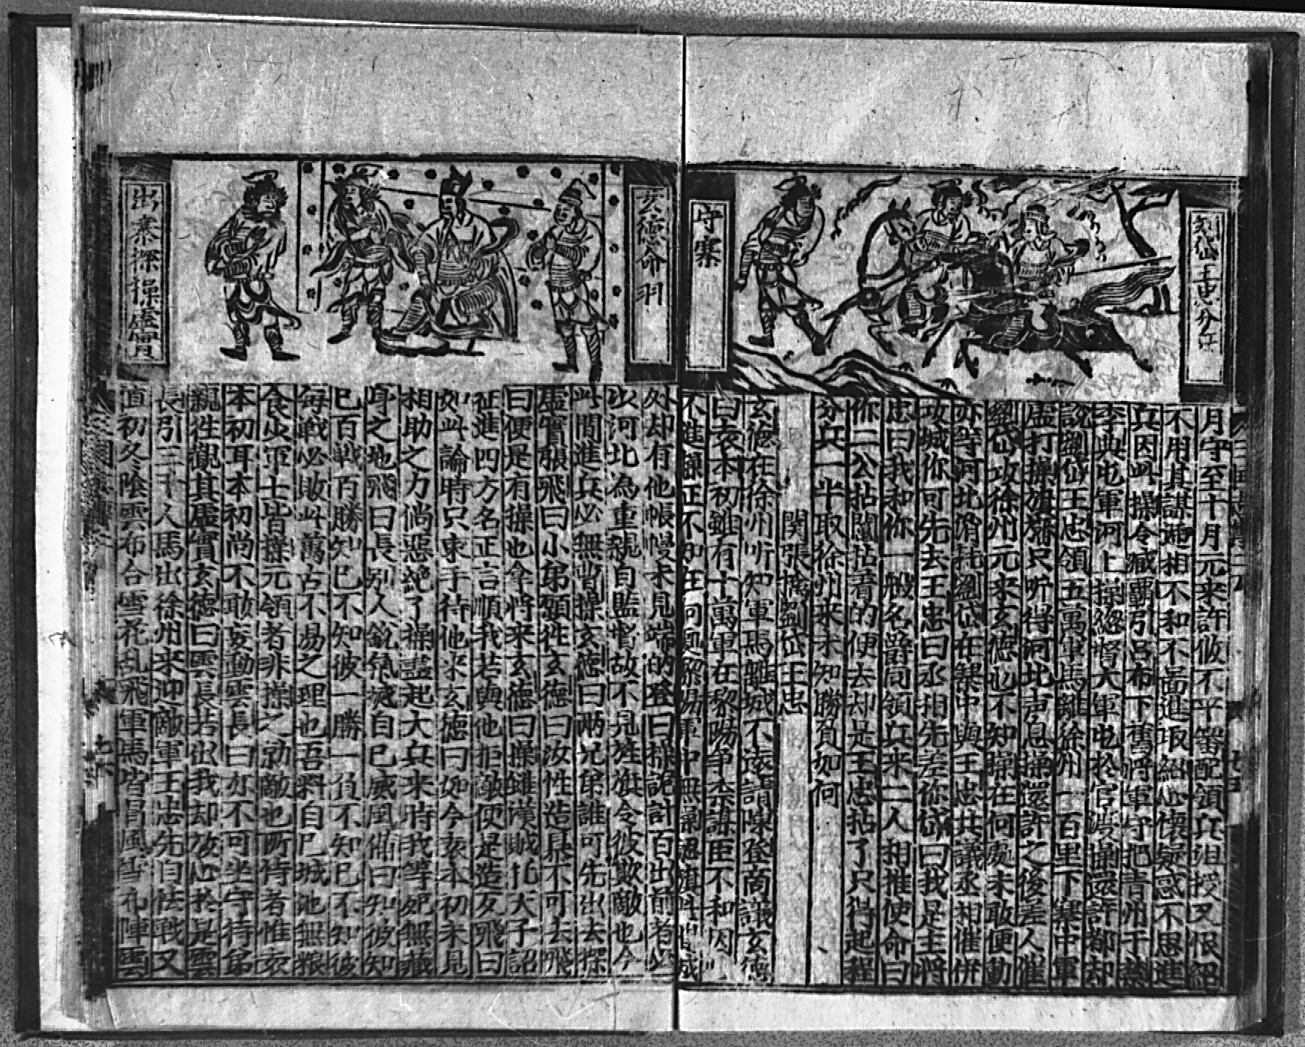 劉岱王忠分兵
守寨
月守至十月元來許攸不平審配領兵沮授又恨紹
不用其謀遞相不和不面進取紹心懷疑惑不思進
兵因此操令臧霸引呂布下舊將軍守把青州于禁
李典屯軍河上操總督大軍屯於官渡操還許都却
說劉岱王忠領五萬軍馬離徐州一百里下寨中軍
虛打操旗號只听得河北声息操還許之後差人催
劉岱攻徐州元来玄德也不知操在何處未敢便動
亦等河北消耗劉岱在寨中與王忠共議丞相催併
攻城你可先去王忠曰丞相先差你岱曰我是主將
忠曰我和你一般名爵同領兵来二人相推使命曰
你二公拈鬮拈着的便去却是王忠拈了只得起程
分兵一半取徐州来未知勝負如何
関張擒劉岱王忠
玄德在徐州听知軍馬離城不遠請陳登商議玄德
曰袁本初雖有十萬軍在黎陽爭柰謀臣不和因
不進
玄德命羽
出寨探操虛實
外却有他帳幔未見端的登曰操詭計百出前者必
以河北為重親自監督故不見旌旗令彼欺敵也今
此間進兵必無曹操玄德曰兩兄弟誰可先出去探
虛實張飛曰小弟願徃玄德曰汝性造暴不可去飛
曰便是有操也拿將来玄德曰操雖漢賊托天子詔
征進四方名正言順我若與他拒敵便是造反飛曰
如此論時只束手待他来玄德曰如今袁本初未見
相助之力倘惡絶了操盡起大兵来時我等死無藏
身之地飛曰長別人銳氣滅自己威風俻曰知彼知
已百戰百勝知已不知彼一勝一負不知已不知彼
每戰必敗此萬古不易之理也吾料自已城池無粮
食少軍士皆操元領者非操之勍敵也所恃者惟袁
本初耳本初尚不敢妄動雲長曰亦不可坐守待弟
親徃觀其虛實玄德曰雲長若出我却放心於是雲
長引三千人馬出徐州来迎敵軍王忠先自怯戰又
值初冬陰雲布合雪花乱飛軍馬皆冒風雪布陣雲